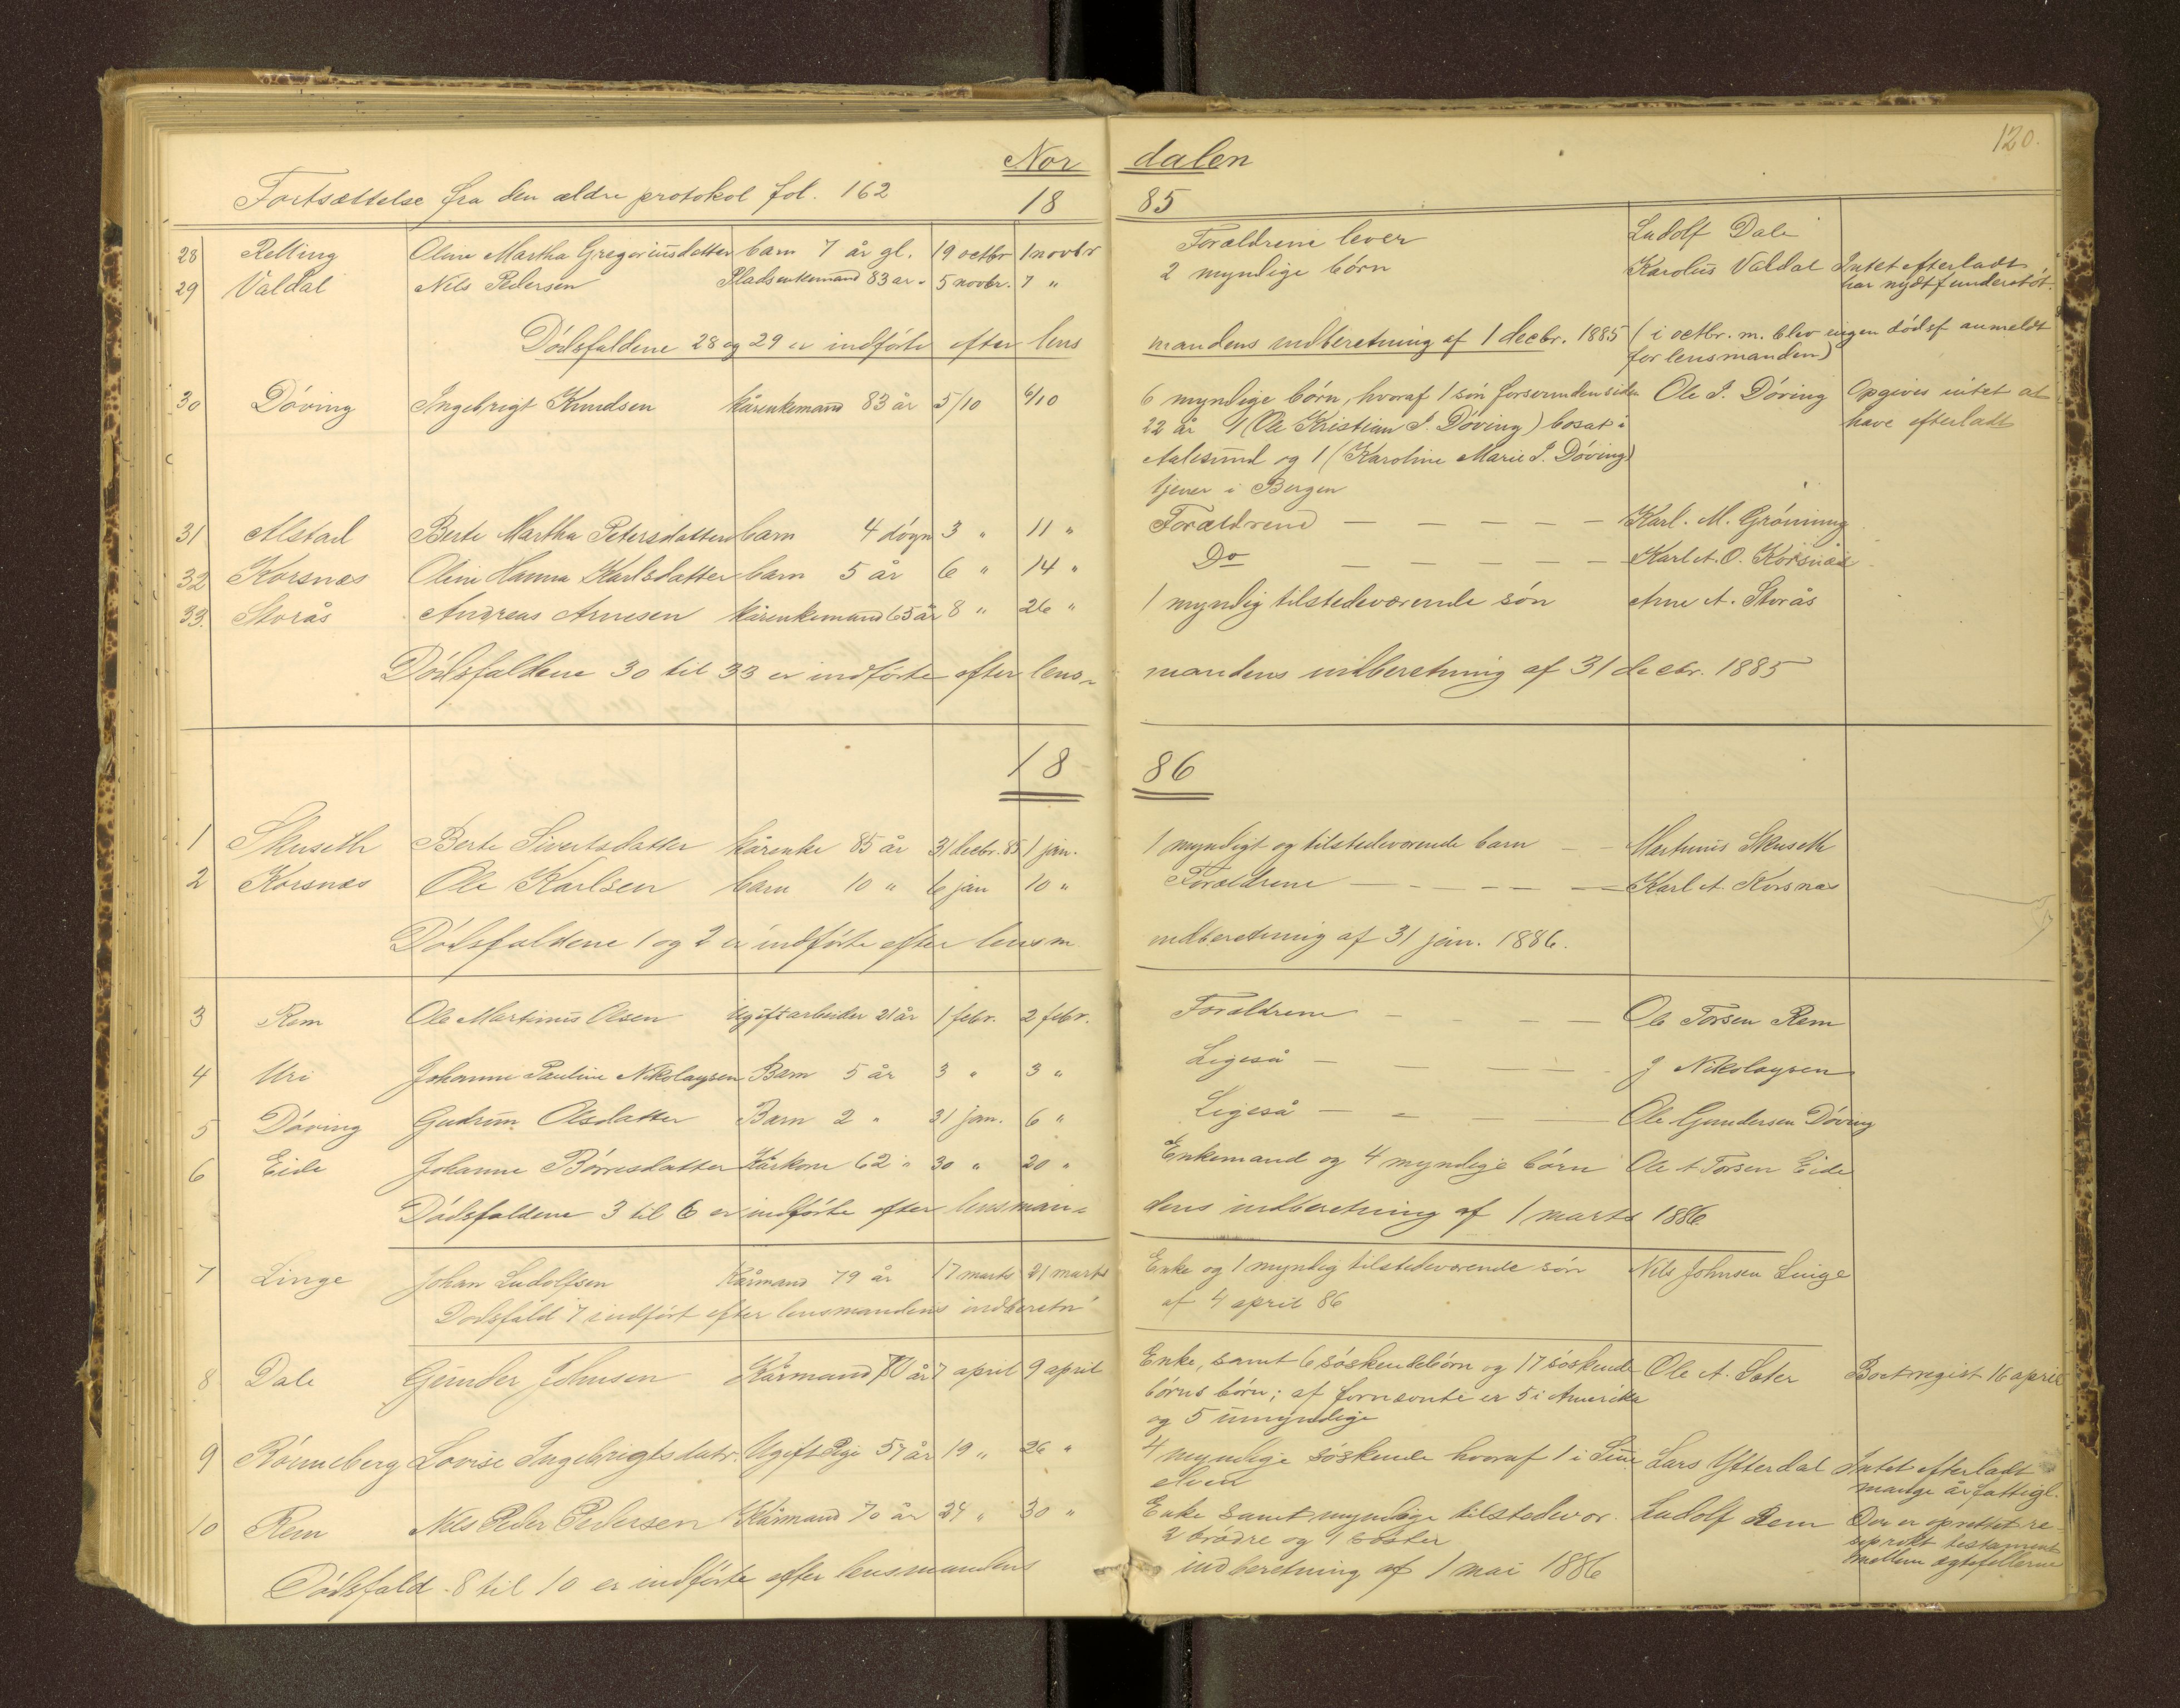 120.
Nor dalen
Fortsættelse fra den ældre protokol fol. 162 18 85
28 Relling Oline Martha Gregoriusdatter barn 7 år gl. 19 octbr 1 novbr Forældrene lever Ludolf Dale
29 Valdal Nils Pedersen Pladsenkemand 83 år 5 novbr. 7 " 2 myndige børn Karolus Valdal Intet efterladt
har nydt f understøt.
Dødsfaldene 28 og 29 er indførte efter lens mandens indberetning af 1 decbr. 1885 (i octbr. m. blev ingen dødsf anmeldt
for lensmanden)
30 Døving Ingebrigt Knudsen kårenkemand 83 år 5/10 6/10 6 myndige børn, hvoraf 1 søn forsvunden siden Ole I. Døving Opgives intet at
22 år 1 (Ole Kristian I. Døving) bosat i have efterladt
Aalesund og 1 (Karoline Marie I. Døving)
tjener i Bergen
31 Alstad Berte Martha Petersdatter barn 4 døgn 3 " 11 " Forældrene — — — — — Karl. M. Grønning
32 Korsnæs Oline Hanna Karlsdatter barn 5 år 6 " 14 " Do — — — — — Karl A. O. Korsnæs
33. Storås Andreas Arnesen kårenkemand 65 år 8 " 26 " 1 myndig tilstedeværende søn Arne A. Storås
Dødsfaldene 30 til 33 er indførte efter lens- mandens indberetning af 31 decbr. 1885
18 86
1 Skuseth Berte Sivertsdatter kårenke 85 år 31 decbr. 85 1 jan. 1 myndigt og tilstedeværende barn — Martinus Skuseth
2 Korsnæs Ole Karlsen barn 10 " 6 jan 10 " Forældrene — — — — — Karl A. Korsnæs
Dødsfaldene 1 og 2 er indførte efter lensm indberetning af 31 jan. 1886.
3 Rem Ole Martinus Olsen Ugift arbeider 21 år 1 febr. 2 febr. Forældrene — — — — Ole Torsen Rem
4 Uri Johanne Pauline Nikolaysen Barn 5 år 3 " 3 " Ligeså — — — — J Nikolaysen
5 Døving Gudrun Olsdatter Barn 2 " 31 jan. 6 " Ligeså — — — — Ole Gundersen Døving
6 Eide Johanne Børresdatter Kårkone 62 " 30 " 20 " Enkemand og 4 myndige børn Ole A Torsen Eide
Dødsfaldene 3 til 6 er indførte efter lensman- dens indberetning af 1 marts 1886.
7 Linge Johan Ludolfsen Kårmand 79 år 17 marts 21 marts Enke og 1 myndig tilstedeværende søn Nils Johnsen Linge
Dødsfald 7 indført efter lensmandens indberetn af 4 april 86
8 Dale Gunder Johnsen Kårmand 70 år 7 april 9 april Enke, samt 6 søskendebørn og 17 søskende Ole A. Sæter Boet regist 16 april
børns børn; af fornævnte er 5 i Amerika
og 5 umyndige
9 Rønneberg Lovise Ingebrigtsdatr. Ugift Pige 57 år 19 " 26 " 4 myndige søskende hvoraf 1 i Lars Ytterdal Intet efterladt
mange år fattigl.
10 Rem Nils Peder Pedersen Kårmand 70 år 24 " 30 " Enke samt myndige tilstedevær. Ludolf Rem Der er oprettet re-
2 brødre og 1 søster ciprokt testament
mellem ægtefellerne
Dødsfald 8 til 10 er indførte efter lensmandens indberetning af 1 mai 1886